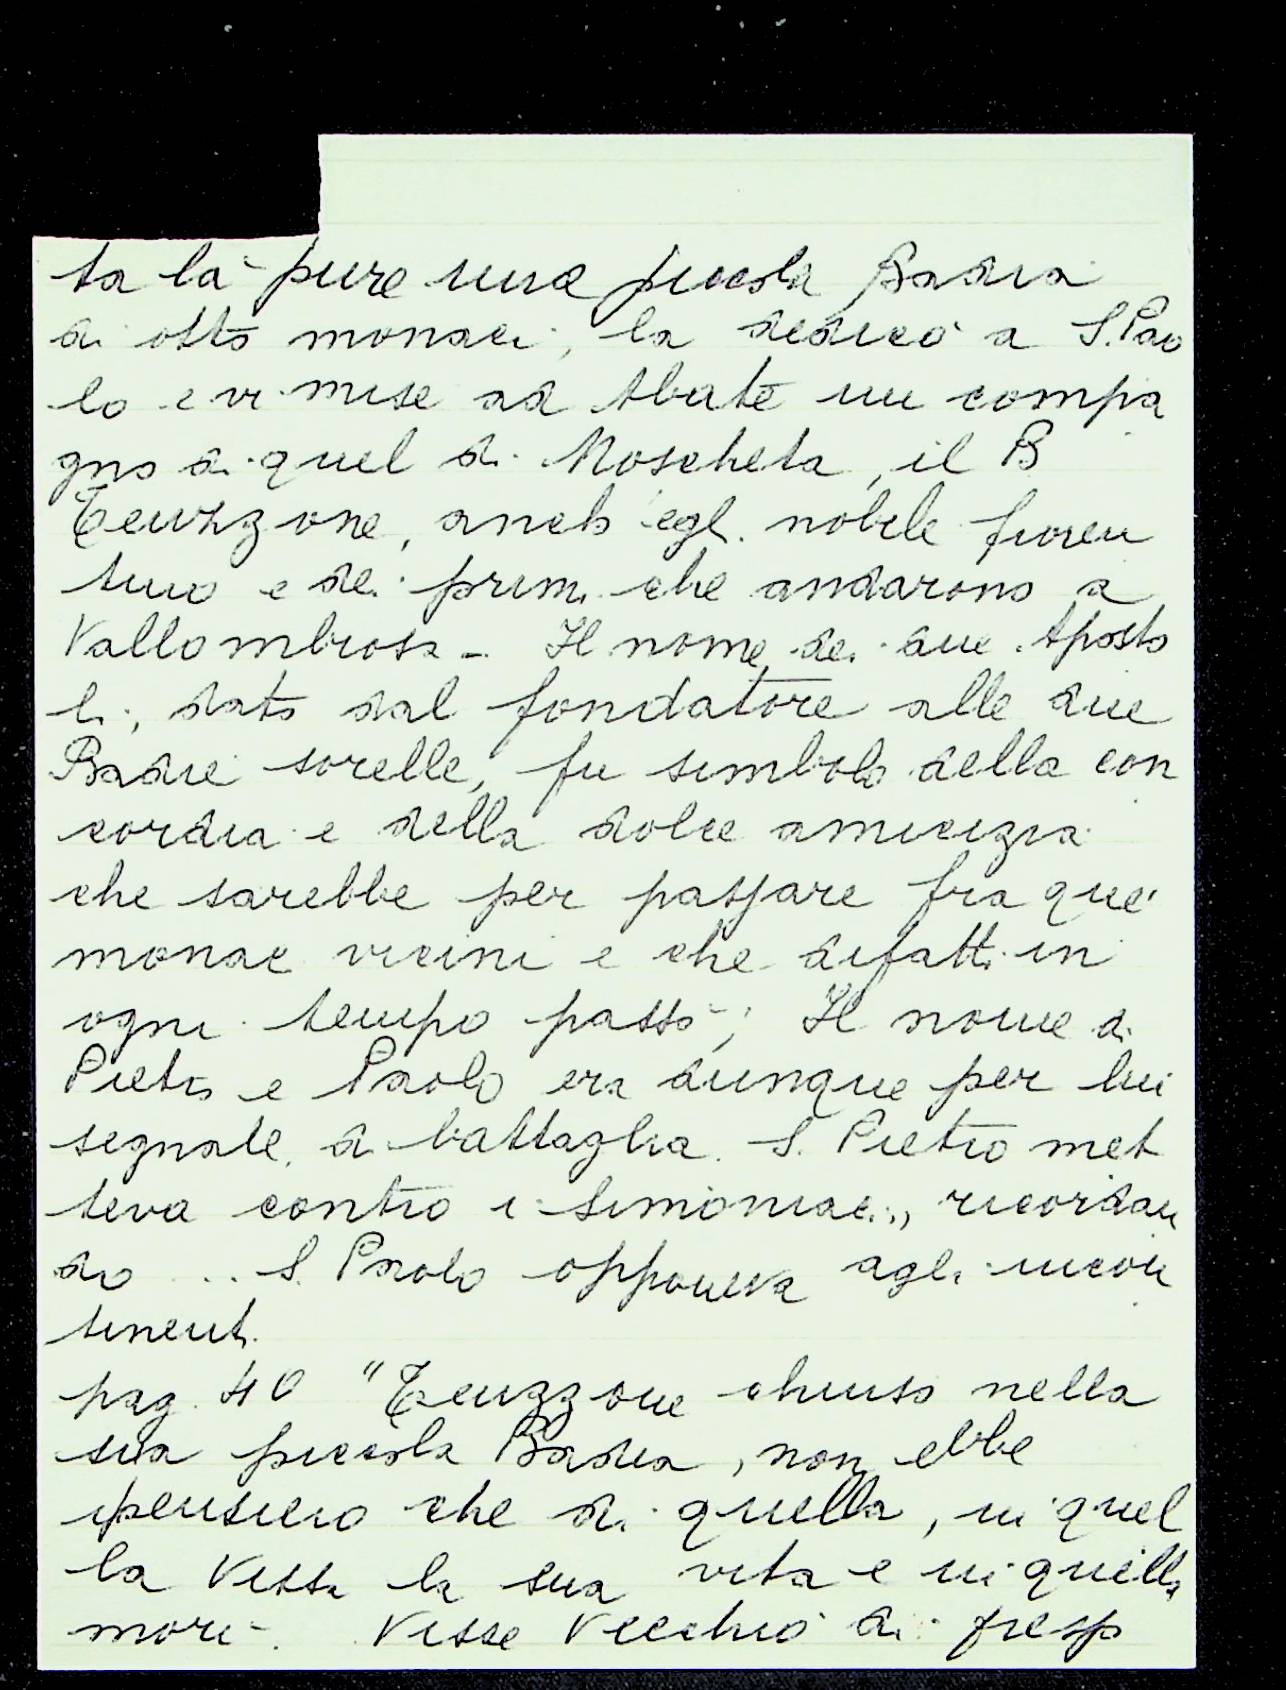 ta là pure una piccola Badia
di otto monaci, la dedicò a S. Pao
lo e vi mise ad Abate un compa
gno di quel di Moscheta, il B
Teuzzone, anch'egli nobile fioren
tino e dei primi che andarono a
Vallombrosa - Il nome dei due Aposto
li, dato dal fondatore alle due
Badie sorelle, fu simbolo della con
cordia e della dolce amicizia
che sarebbe per passare fra que'
monaci vicini e che difatti in
ogni tempo passò; Il nome di
Pietro e Paolo era dunque per lui
segnale di battaglia. S. Pietro met
teva contro i simoniaci, ricordan
do ... S. Paolo opponeva agli incon
tinenti.
pag. 40 "Teuzzone chiuso nella
sua piccola Badia, non ebbe
pensiero che di quella, in quel
la visse la sua vita e in quella
morì. Visse Vecchio di